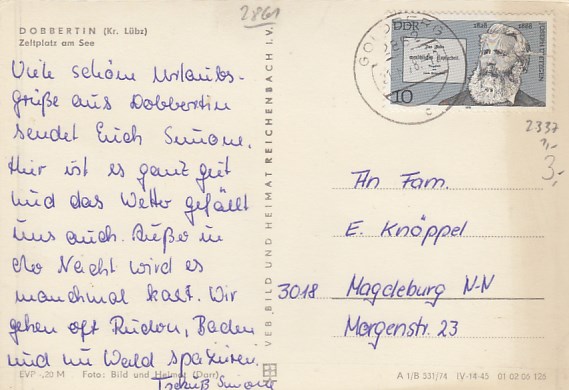 2861
DOBBERTIN (Kr. Lübz)
Zeltplatz am See
Viele schöne Urlaubs-
grüße aus Dobbertin
sendet Euch Simone.
Hier ist es ganz gut
und das Wetter gefällt
uns auch. Außer in
der Nacht wird es
manchmal kalt. Wir
gehen oft Rudern, Baden
und im Wald spazieren.
Tschüß Simone
EVP -,20 M Foto: Bild und Heimat (Darr)
VEB BILD UND HEIMAT REICHENBACH I.V.
GOLDBERG
DDR
1818 1988
10
2337
1,-
3,-
An Fam.
E. Knöppel
3018 Magdeburg N-N
Morgenstr. 23
A 1/B 531/74 IV-14-45 01 02 06 126